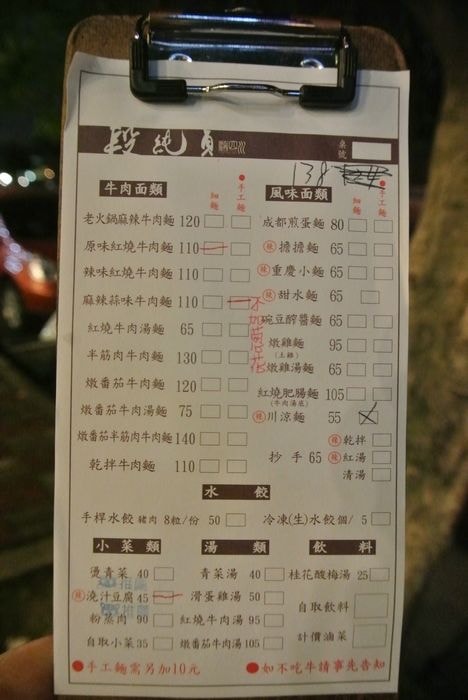 段純貞
桌號
138
牛肉面類 細麵 手工麵
老火鍋麻辣牛肉麵 120
原味紅燒牛肉麵 110
辣味紅燒牛肉麵 110
麻辣蒜味牛肉麵 110
紅燒牛肉湯麵 65
半筋肉牛肉麵 130
燉番茄牛肉麵 120
燉番茄牛肉湯麵 75
燉番茄半筋肉牛肉麵 140
乾拌牛肉麵 110
不加蔥花
風味面類 細麵 手工麵
成都煎蛋麵 80
辣 擔擔麵 65
辣 重慶小麵 65
辣 甜水麵 65
豌豆醡醬麵 65
燉雞麵 95
(土雞)
燉雞湯麵 65
紅燒肥腸麵 105
(牛肉湯底)
辣 川涼麵 55
抄手 65
辣 乾拌
辣 紅湯
清湯
水餃
手桿水餃 豬肉 8粒/份 50
冷凍(生)水餃個/ 5
小菜類
燙青菜 40
辣 澆汁豆腐 45
推薦
粉蒸肉 90
推薦
自取小菜 35
湯類
青菜湯 40
滑蛋雞湯 50
紅燒牛肉湯 95
燉番茄牛肉湯 105
飲料
桂花酸梅湯 25
自取飲料
計價滷菜
●手工麵需另加10元
●如不吃牛請事先告知